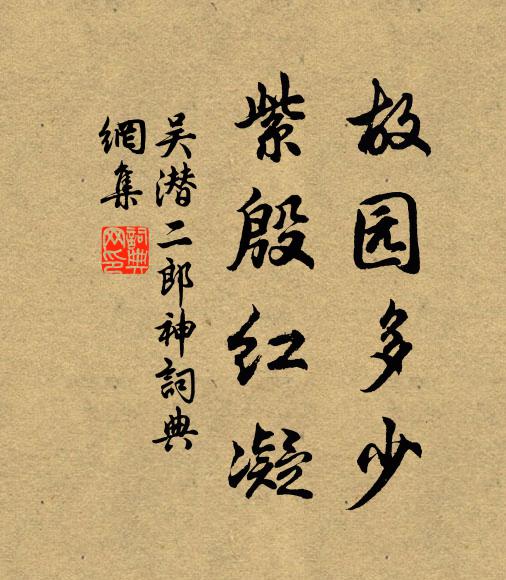 故园多少
紫殷红凝
吴潜二郎神詞典
網集
詞典网印